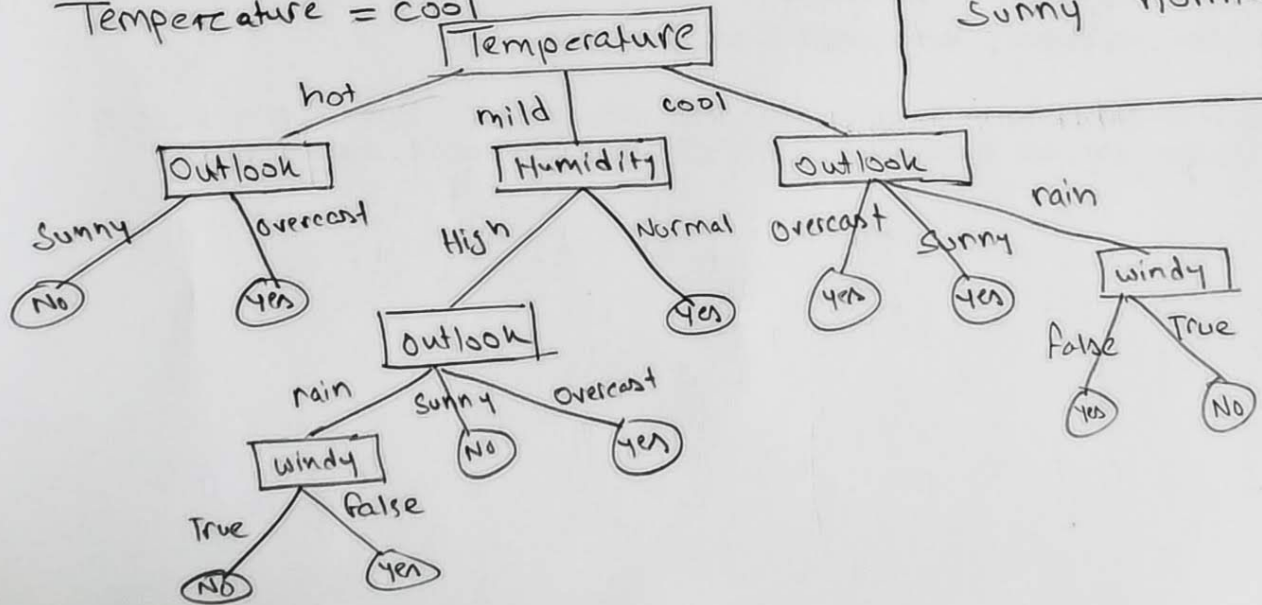 Temperature = cool
Sunny
Temperature
hot mild cool
Outlook Humidity Outlook
Sunny Overcast High Normal Overcast Sunny rain
No Yes Yes Yes Yes windy
outlook
False True
rain Sunny Overcast
Yes No
windy No Yes
True False
No Yes